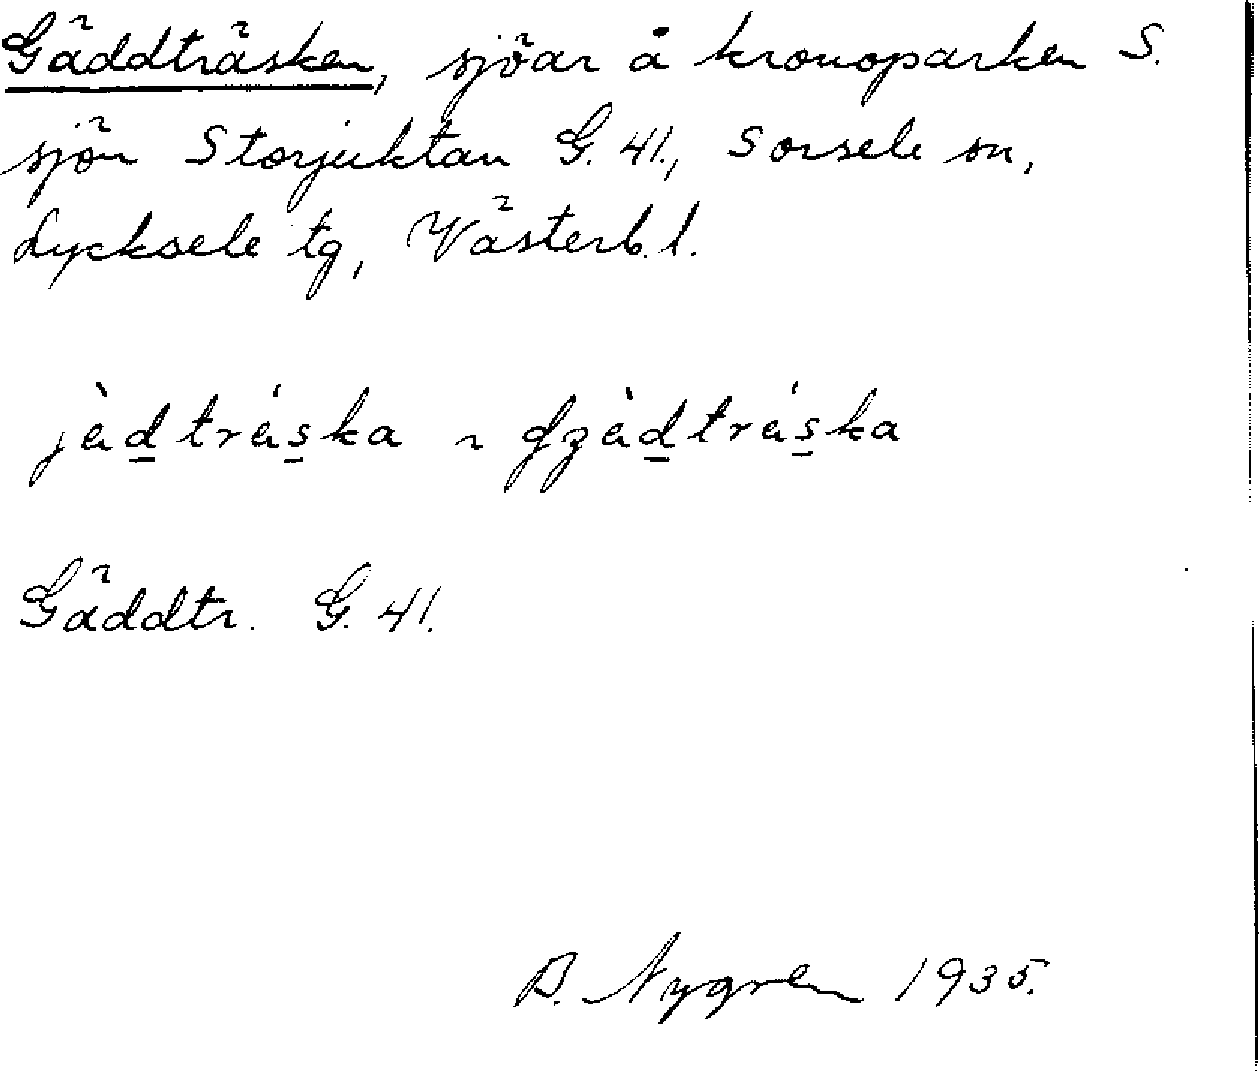 Gäddträsken, sjöar å kronoparken S.
sjön Storjuktan G. 41., Sorsele sn,
Lycksele tg, Västerb. l.
jàd̲tràs̲ka ~ dʒàd̲tràs̲ka
Gäddtr. G. 41.
B. Nygren 1935.